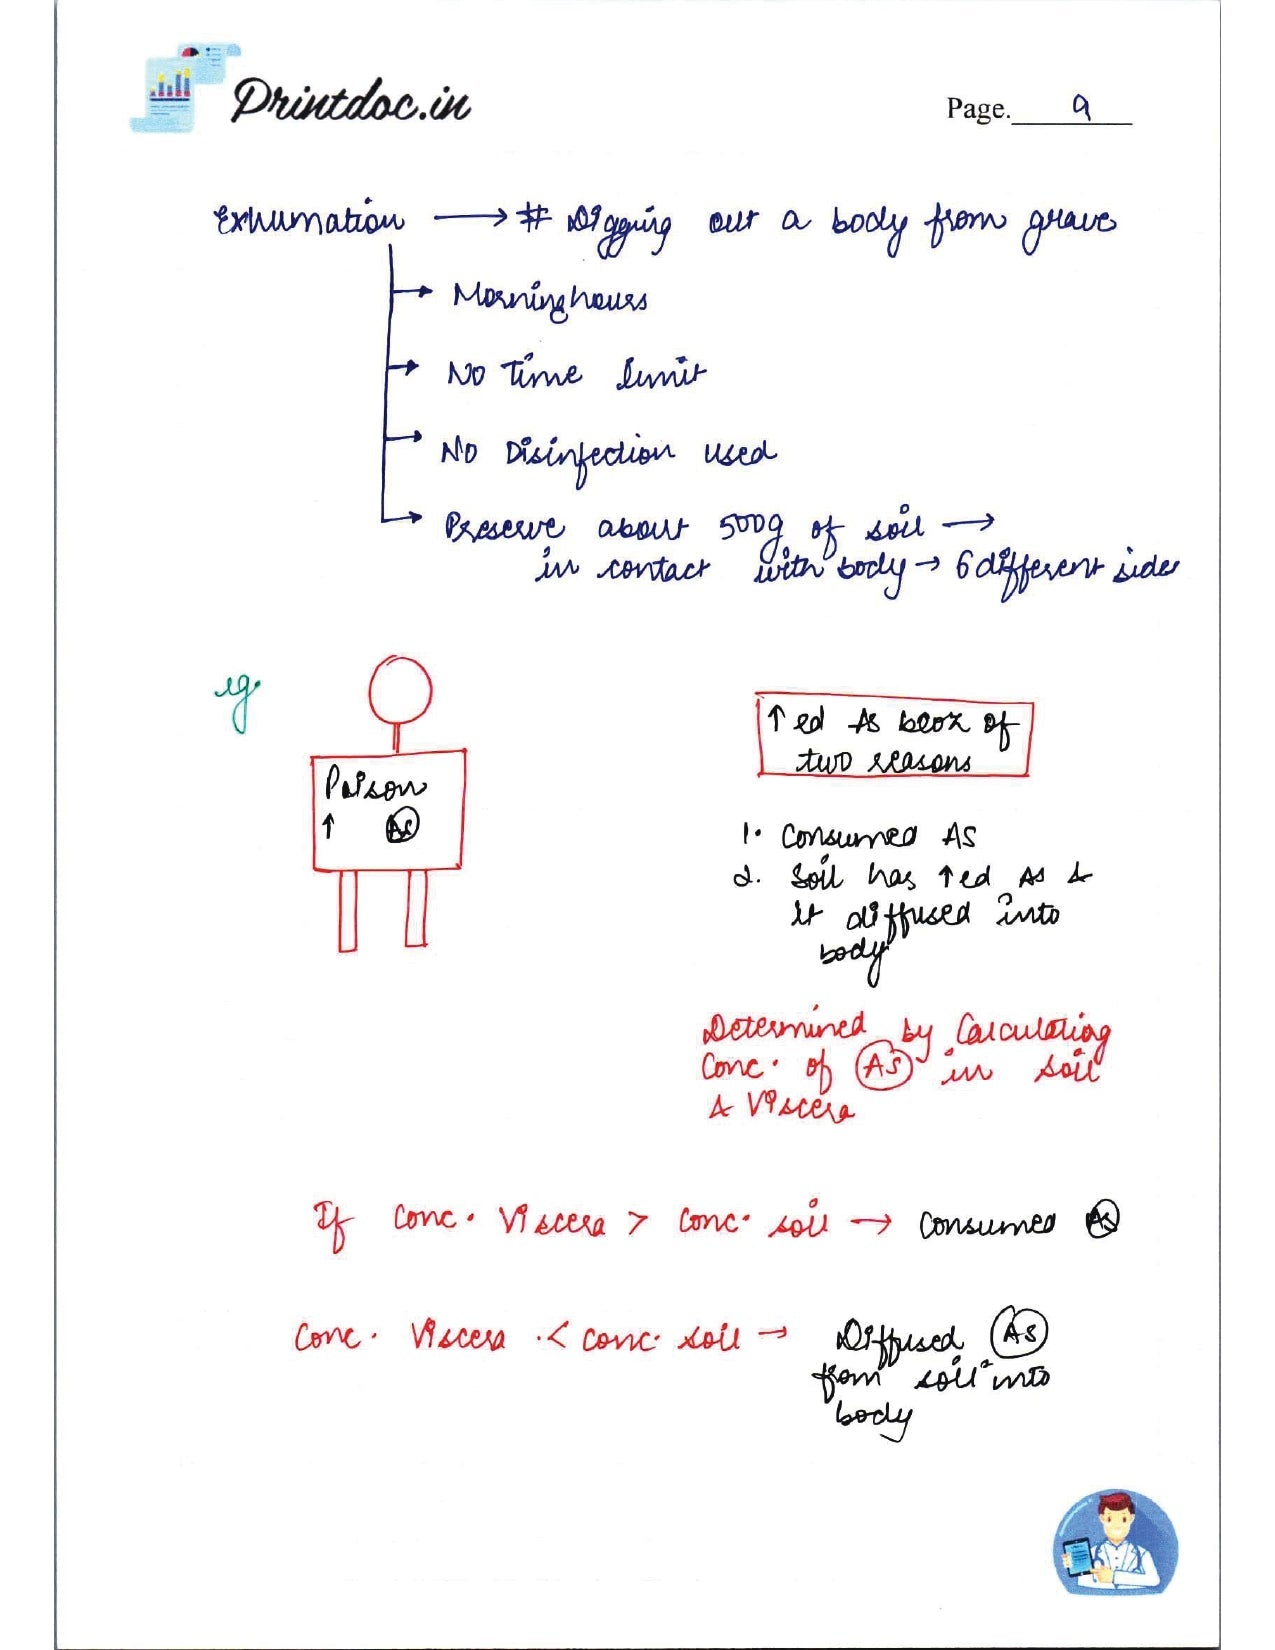 Printdoc.in
Page. 9
Exhumation → # Digging out a body from grave
→ Morning hours
→ No Time limit
→ No Disinfection used
→ Preserve about 500g of soil →
in contact with body → 6 different sides
eg.
Poison
↑ As
↑ed As becoz of
two reasons
1. Consumed As
2. Soil has ↑ed As &
it diffused into
body
Determined by Calculating
Conc. of As in soil
& Viscera
If Conc. Viscera > Conc. soil → Consumed As
Conc. Viscera < conc. soil → Diffused As
from soil into
body